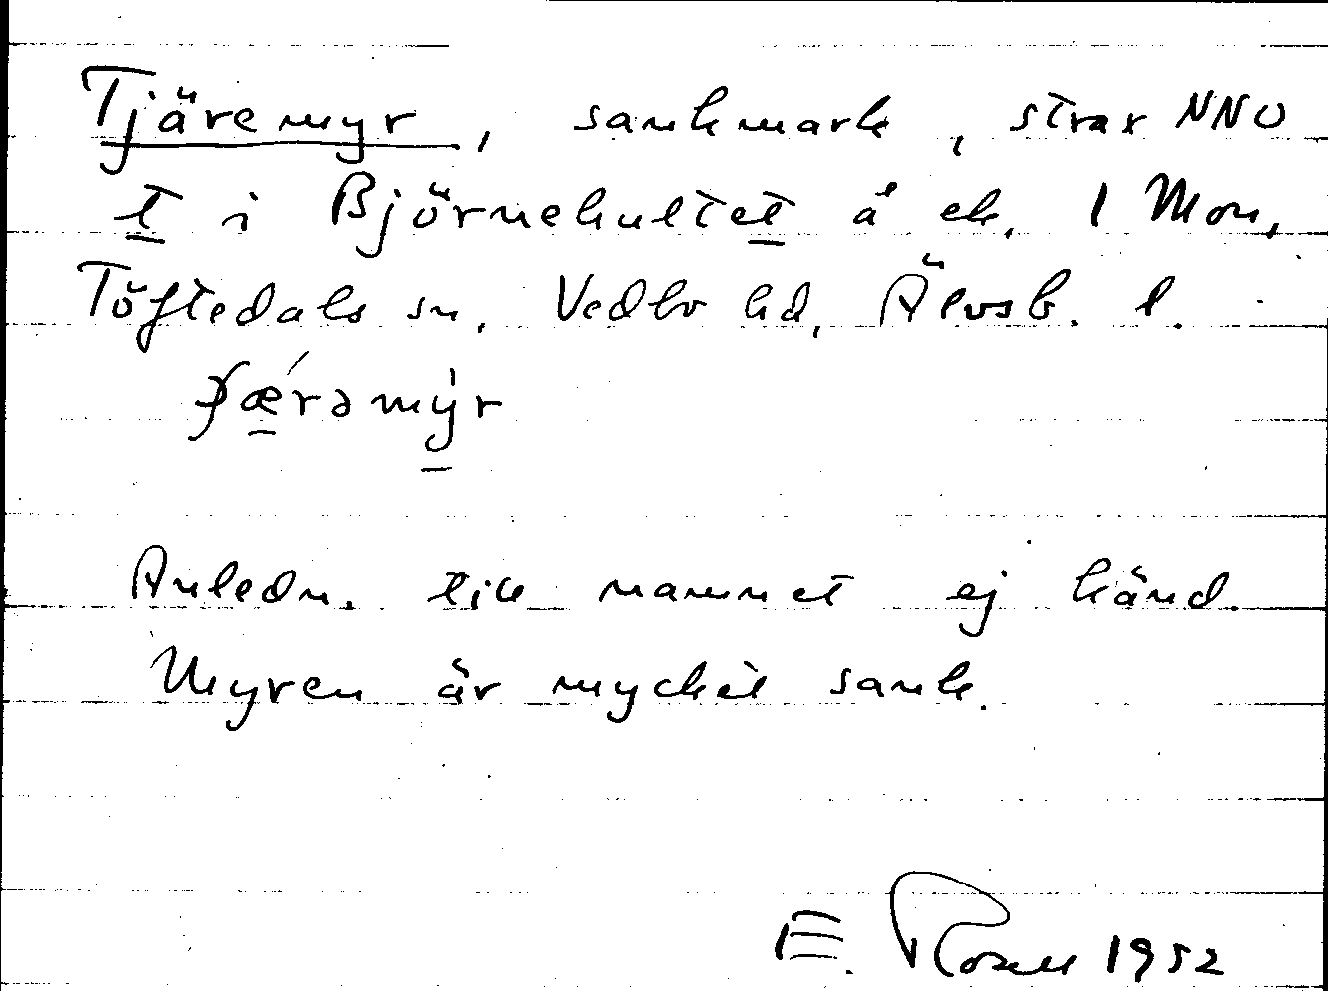 Tjäremyr, sankmark, strax NNO
t i Björnekultet å ek. 1 Mon,
Töftedals sn, Vedbo hd, Älvsb. l.
Anledn. till namnet ej känd.
Myren är mycket sank.
E. Rosell 1952